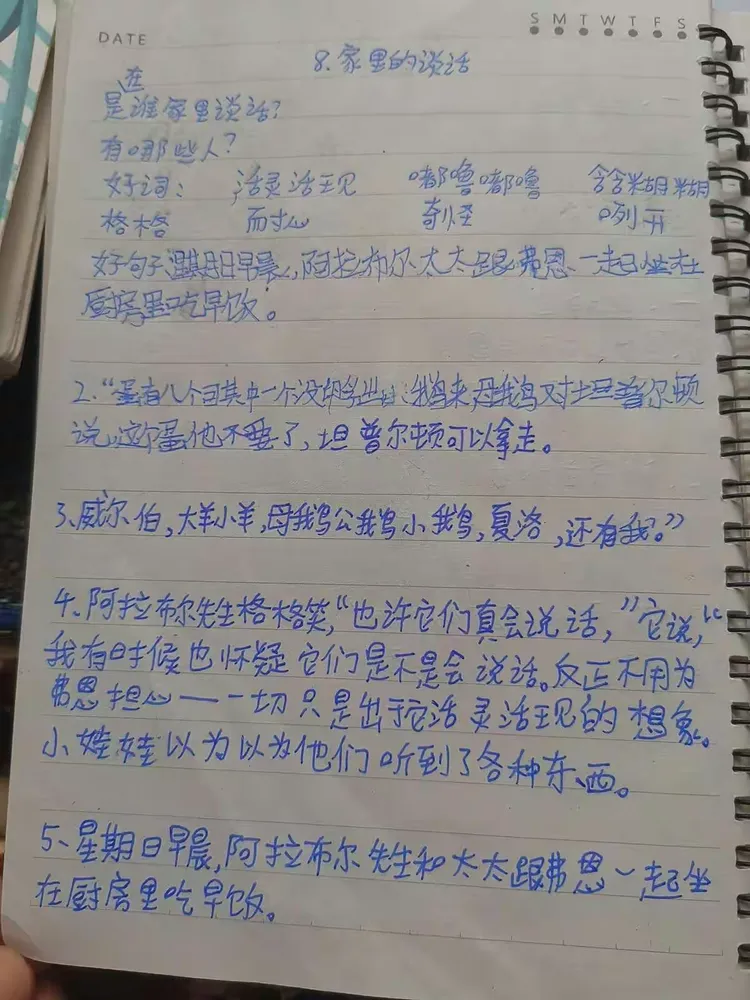 DATE
S M T W T F S
8.家里的说话
在
是谁家里说话?
有哪些人?
好词: 活灵活现 嘟噜嘟噜 含含糊糊
格格 而心 奇怪 咧开
好句子 期日早晨,阿拉布尔太太跟弗恩一起坐在
厨房里吃早饭。
2.“蛋有八个 其中一个没 出 鹅来,母鹅对坦普尔顿
说,这个蛋他不要了,坦普尔顿可以拿走。
3、威尔伯,大羊小羊,母鹅公鹅小鹅,夏洛,还有我。”
4、阿拉布尔先生格格笑,“也许它们真会说话,”它说,“
我有时候也怀疑它们是不是会说话。反正不用为
弗恩担心——一切只是出于它活灵活现的想象。
小娃娃以为以为他们听到了各种东西。
5、星期日早晨,阿拉布尔先生和太太跟弗恩一起坐
在厨房里吃早饭。